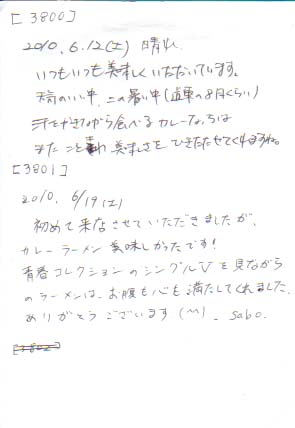 [3800]
2010.6.12(土) 晴れ
いつもいつも美味しくいただいています。
天気のいい中、この暑い中(道東の8月くらい)
汗をかきながら食べるカレーなちは
またこと 美味しさをひきたたせてくれますね。
[3801]
2010. 6/19(土)
初めて来店させていただきましたが、
カレーラーメン美味しかったです!
青春コレクションのシングルVを見ながら
のラーメンは、お腹も心も満たしてくれました。
ありがとうございます(^^)。sabo.
[3802]